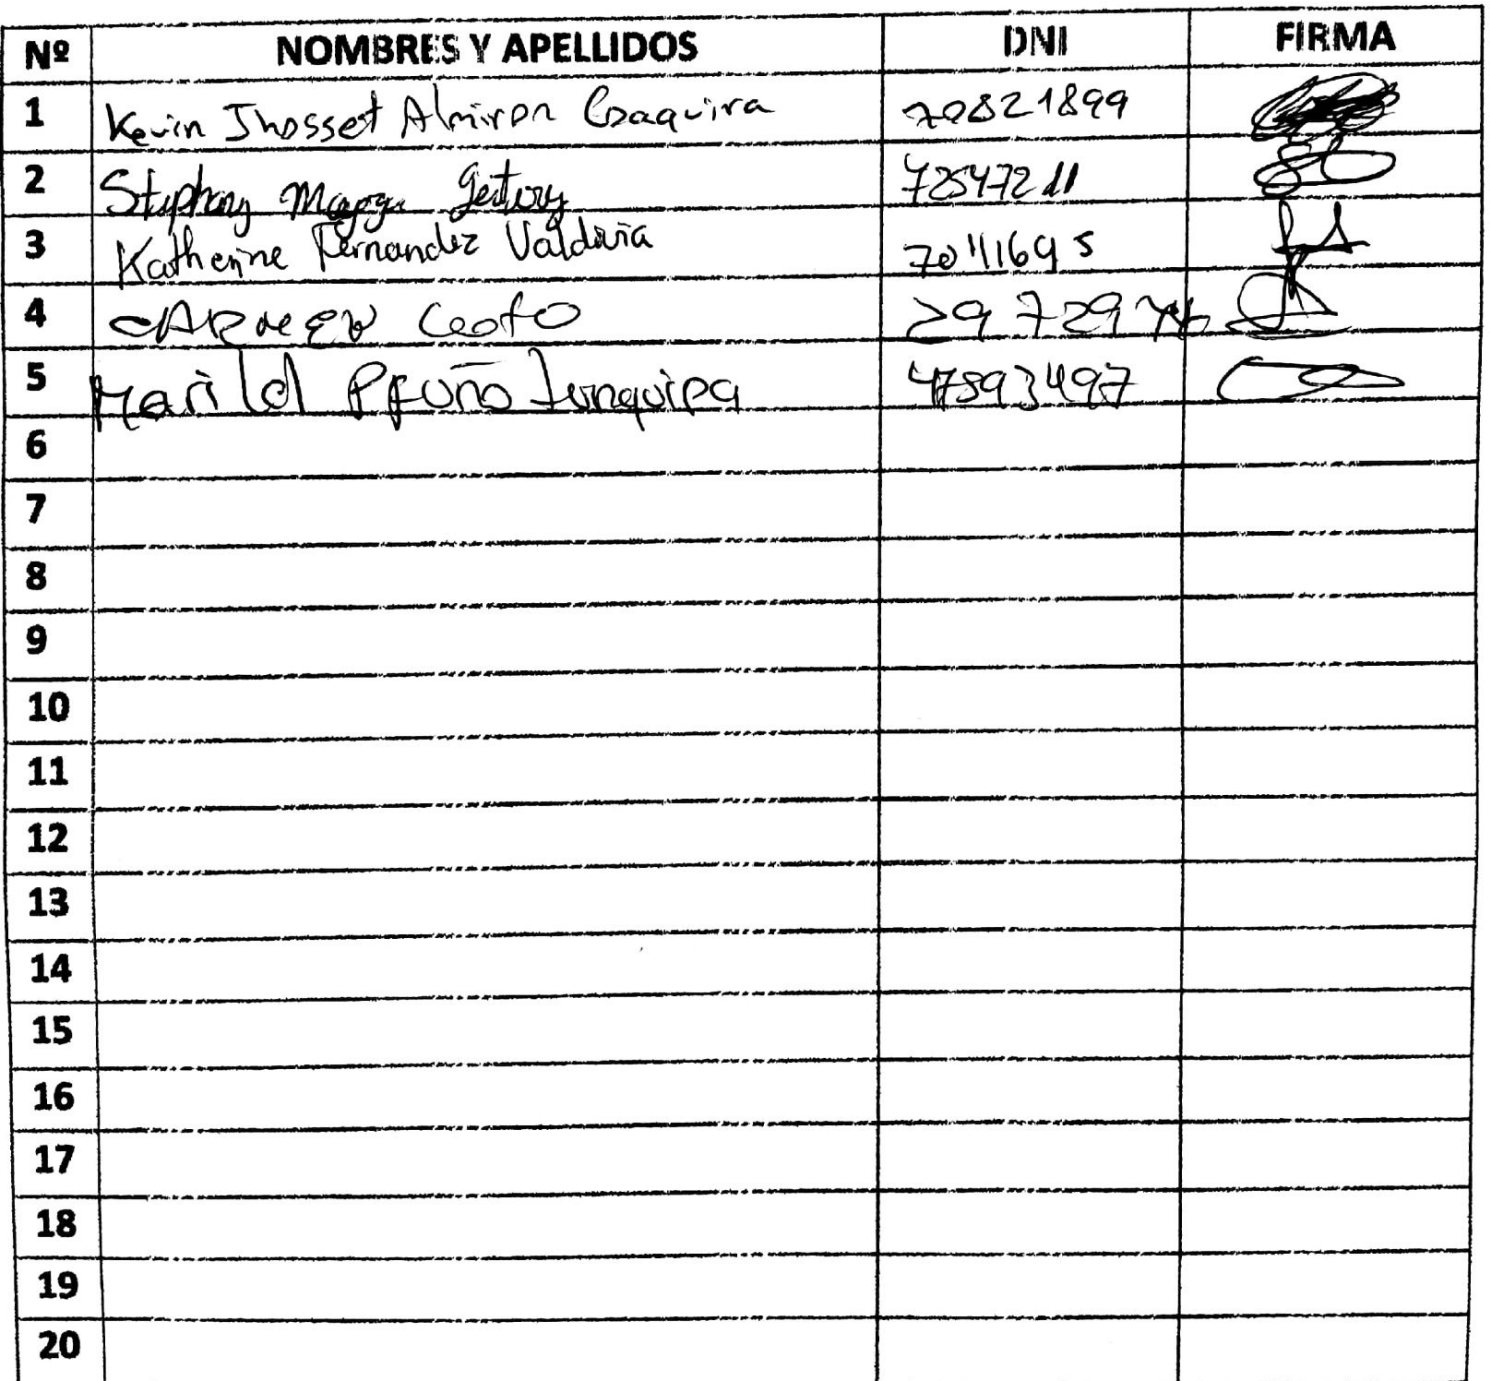 Nº NOMBRES Y APELLIDOS DNI FIRMA
1 Kevin Jhosset Almiron Coaquira 70821899
2 Stephany 72547211
3 Katherine Fernandez Valdivia 70411695
4 CARMEN Ccoto
5 Pfuño Tunquipa 47593497
6
7
8
9
10
11
12
13
14
15
16
17
18
19
20